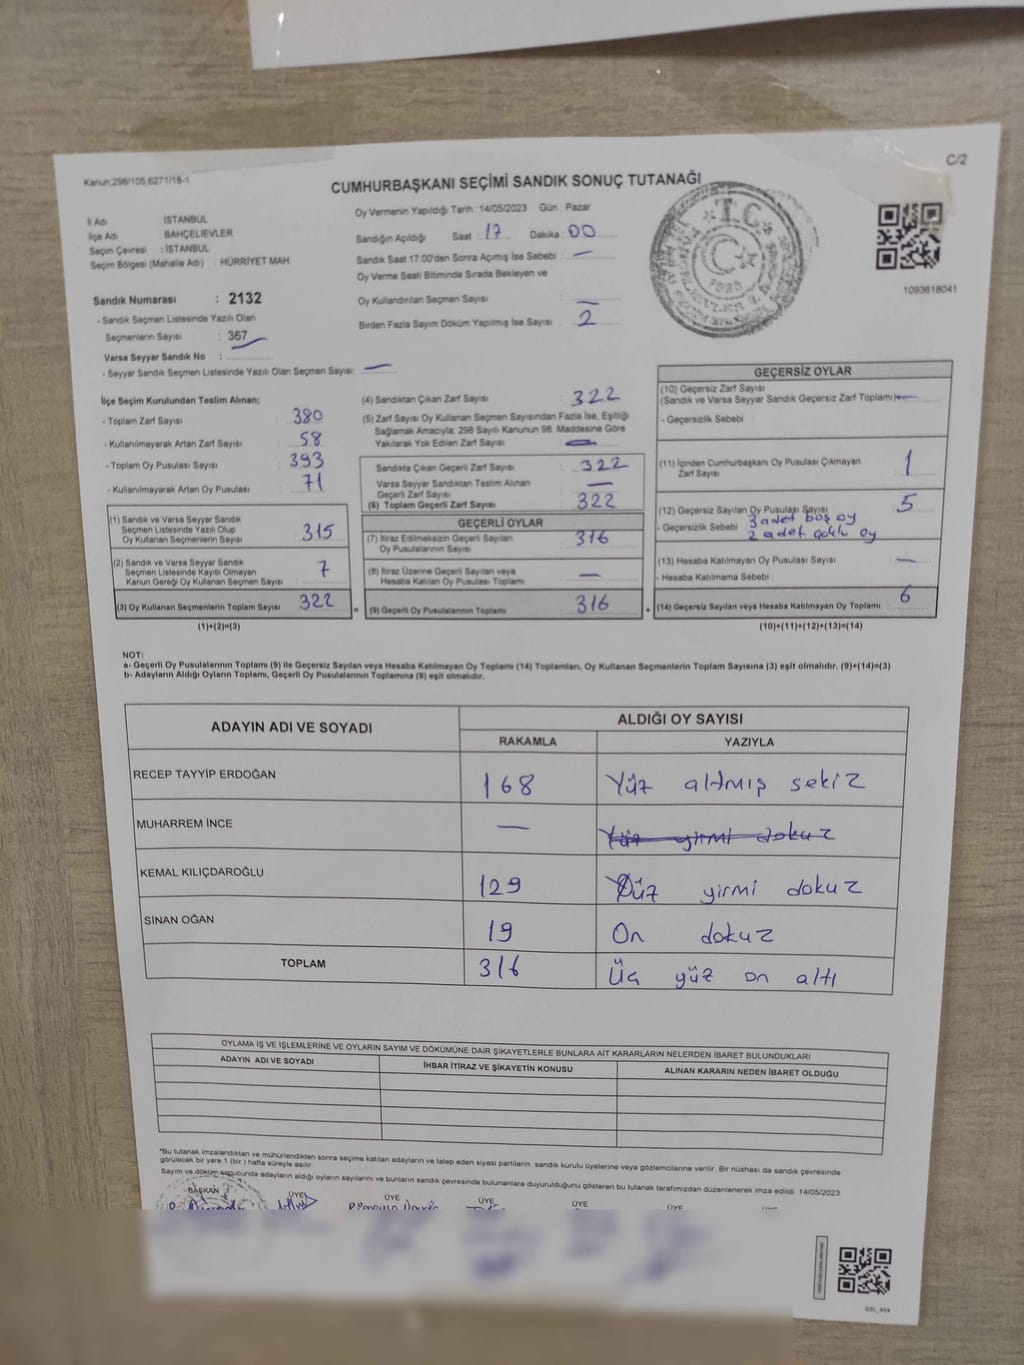 C/2
Kanun:298/105;6271/18-1
CUMHURBAŞKANI SEÇİMİ SANDIK SONUÇ TUTANAĞI
İl Adı : İSTANBUL
İlçe Adı : BAHÇELİEVLER
Seçim Çevresi : İSTANBUL
Seçim Bölgesi (Mahalle Adı) : HÜRRİYET MAH.
Oy Vermenin Yapıldığı Tarih :14/05/2023 Gün : Pazar
Sandığın Açıldığı Saat : 17 Dakika : 00
Sandık Saat 17:00'den Sonra Açılmış İse Sebebi : —
Oy Verme Saati Bitiminde Sırada Bekleyen ve
Oy Kullandırılan Seçmen Sayısı : —
Birden Fazla Sayım Döküm Yapılmış İse Sayısı : 2
T.C.
1923
1093618041
Sandık Numarası : 2132
- Sandık Seçmen Listesinde Yazılı Olan
Seçmenlerin Sayısı : 367
Varsa Seyyar Sandık No :
- Seyyar Sandık Seçmen Listesinde Yazılı Olan Seçmen Sayısı: —
İlçe Seçim Kurulundan Teslim Alınan;
- Toplam Zarf Sayısı : 380
- Kullanılmayarak Artan Zarf Sayısı : 58
- Toplam Oy Pusulası Sayısı : 393
- Kullanılmayarak Artan Oy Pusulası : 71
(1) Sandık ve Varsa Seyyar Sandık
Seçmen Listesinde Yazılı Olup
Oy Kullanan Seçmenlerin Sayısı : 315
(2) Sandık ve Varsa Seyyar Sandık
Seçmen Listesinde Kayıtlı Olmayan
Kanun Gereği Oy Kullanan Seçmen Sayısı : 7
(3) Oy Kullanan Seçmenlerin Toplam Sayısı : 322
(1)+(2)=(3)
(4) Sandıktan Çıkan Zarf Sayısı : 322
(5) Zarf Sayısı Oy Kullanan Seçmen Sayısından Fazla İse, Eşitliği
Sağlamak Amacıyla; 298 Sayılı Kanunun 98. Maddesine Göre
Yakılarak Yok Edilen Zarf Sayısı : —
Sandıkta Çıkan Geçerli Zarf Sayısı : 322
Varsa Seyyar Sandıktan Teslim Alınan
Geçerli Zarf Sayısı : —
(6) Toplam Geçerli Zarf Sayısı : 322
GEÇERLİ OYLAR
(7) İtiraz Edilmeksizin Geçerli Sayılan
Oy Pusulalarının Sayısı : 316
(8) İtiraz Üzerine Geçerli Sayılan veya
Hesaba Katılan Oy Pusulası Toplamı : —
(9) Geçerli Oy Pusulalarının Toplamı : 316
GEÇERSİZ OYLAR
(10) Geçersiz Zarf Sayısı
(Sandık ve Varsa Seyyar Sandık Geçersiz Zarf Toplamı): —
- Geçersizlik Sebebi :
(11) İçinden Cumhurbaşkanı Oy Pusulası Çıkmayan
Zarf Sayısı : 1
(12) Geçersiz Sayılan Oy Pusulası Sayısı : 5
- Geçersizlik Sebebi : 3 adet boş oy
2 adet çoklu oy
(13) Hesaba Katılmayan Oy Pusulası Sayısı : —
- Hesaba Katılmama Sebebi :
(14) Geçersiz Sayılan veya Hesaba Katılmayan Oy Toplamı : 6
(10)+(11)+(12)+(13)=(14)
NOT:
a- Geçerli Oy Pusulalarının Toplamı (9) ile Geçersiz Sayılan veya Hesaba Katılmayan Oy Toplamı (14) Toplamları, Oy Kullanan Seçmenlerin Toplam Sayısına (3) eşit olmalıdır. (9)+(14)=(3)
b- Adayların Aldığı Oyların Toplamı, Geçerli Oy Pusulalarının Toplamına (9) eşit olmalıdır.
ADAYIN ADI VE SOYADI ALDIĞI OY SAYISI
RAKAMLA YAZIYLA
RECEP TAYYİP ERDOĞAN 168 Yüz altmış sekiz
MUHARREM İNCE — Yüz yirmi dokuz
KEMAL KILIÇDAROĞLU 129 Yüz yirmi dokuz
SİNAN OĞAN 19 On dokuz
TOPLAM 316 Üç yüz on altı
OYLAMA İŞ VE İŞLEMLERİNE VE OYLARIN SAYIM VE DÖKÜMÜNE DAİR ŞİKAYETLERLE BUNLARA AİT KARARLARIN NELERDEN İBARET BULUNDUKLARI
ADAYIN ADI VE SOYADI İHBAR İTİRAZ VE ŞİKAYETİN KONUSU ALINAN KARARIN NEDEN İBARET OLDUĞU
*Bu tutanak imzalandıktan ve mühürlendikten sonra seçime katılan adayların ve talep eden siyasi partilerin sandık kurulu üyelerine veya gözlemcilerine verilir. Bir nüshası da sandık çevresinde
görülecek bir yere 1 (bir) hafta süreyle asılır.
Sayım ve döküm sonucunda adayların aldığı oyların sayılarını ve bunların sandık çevresinde bulunanlara duyurulduğunu gösteren bu tutanak tarafımızdan düzenlenerek imza edildi. 14/05/2023
BAŞKAN ÜYE ÜYE ÜYE ÜYE ÜYE